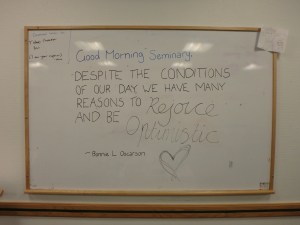 Good Morning Seminary,
DESPITE THE CONDITIONS
OF OUR DAY, WE HAVE MANY
REASONS TO Rejoice
AND BE Optimistic
~Bonnie L. Oscarson